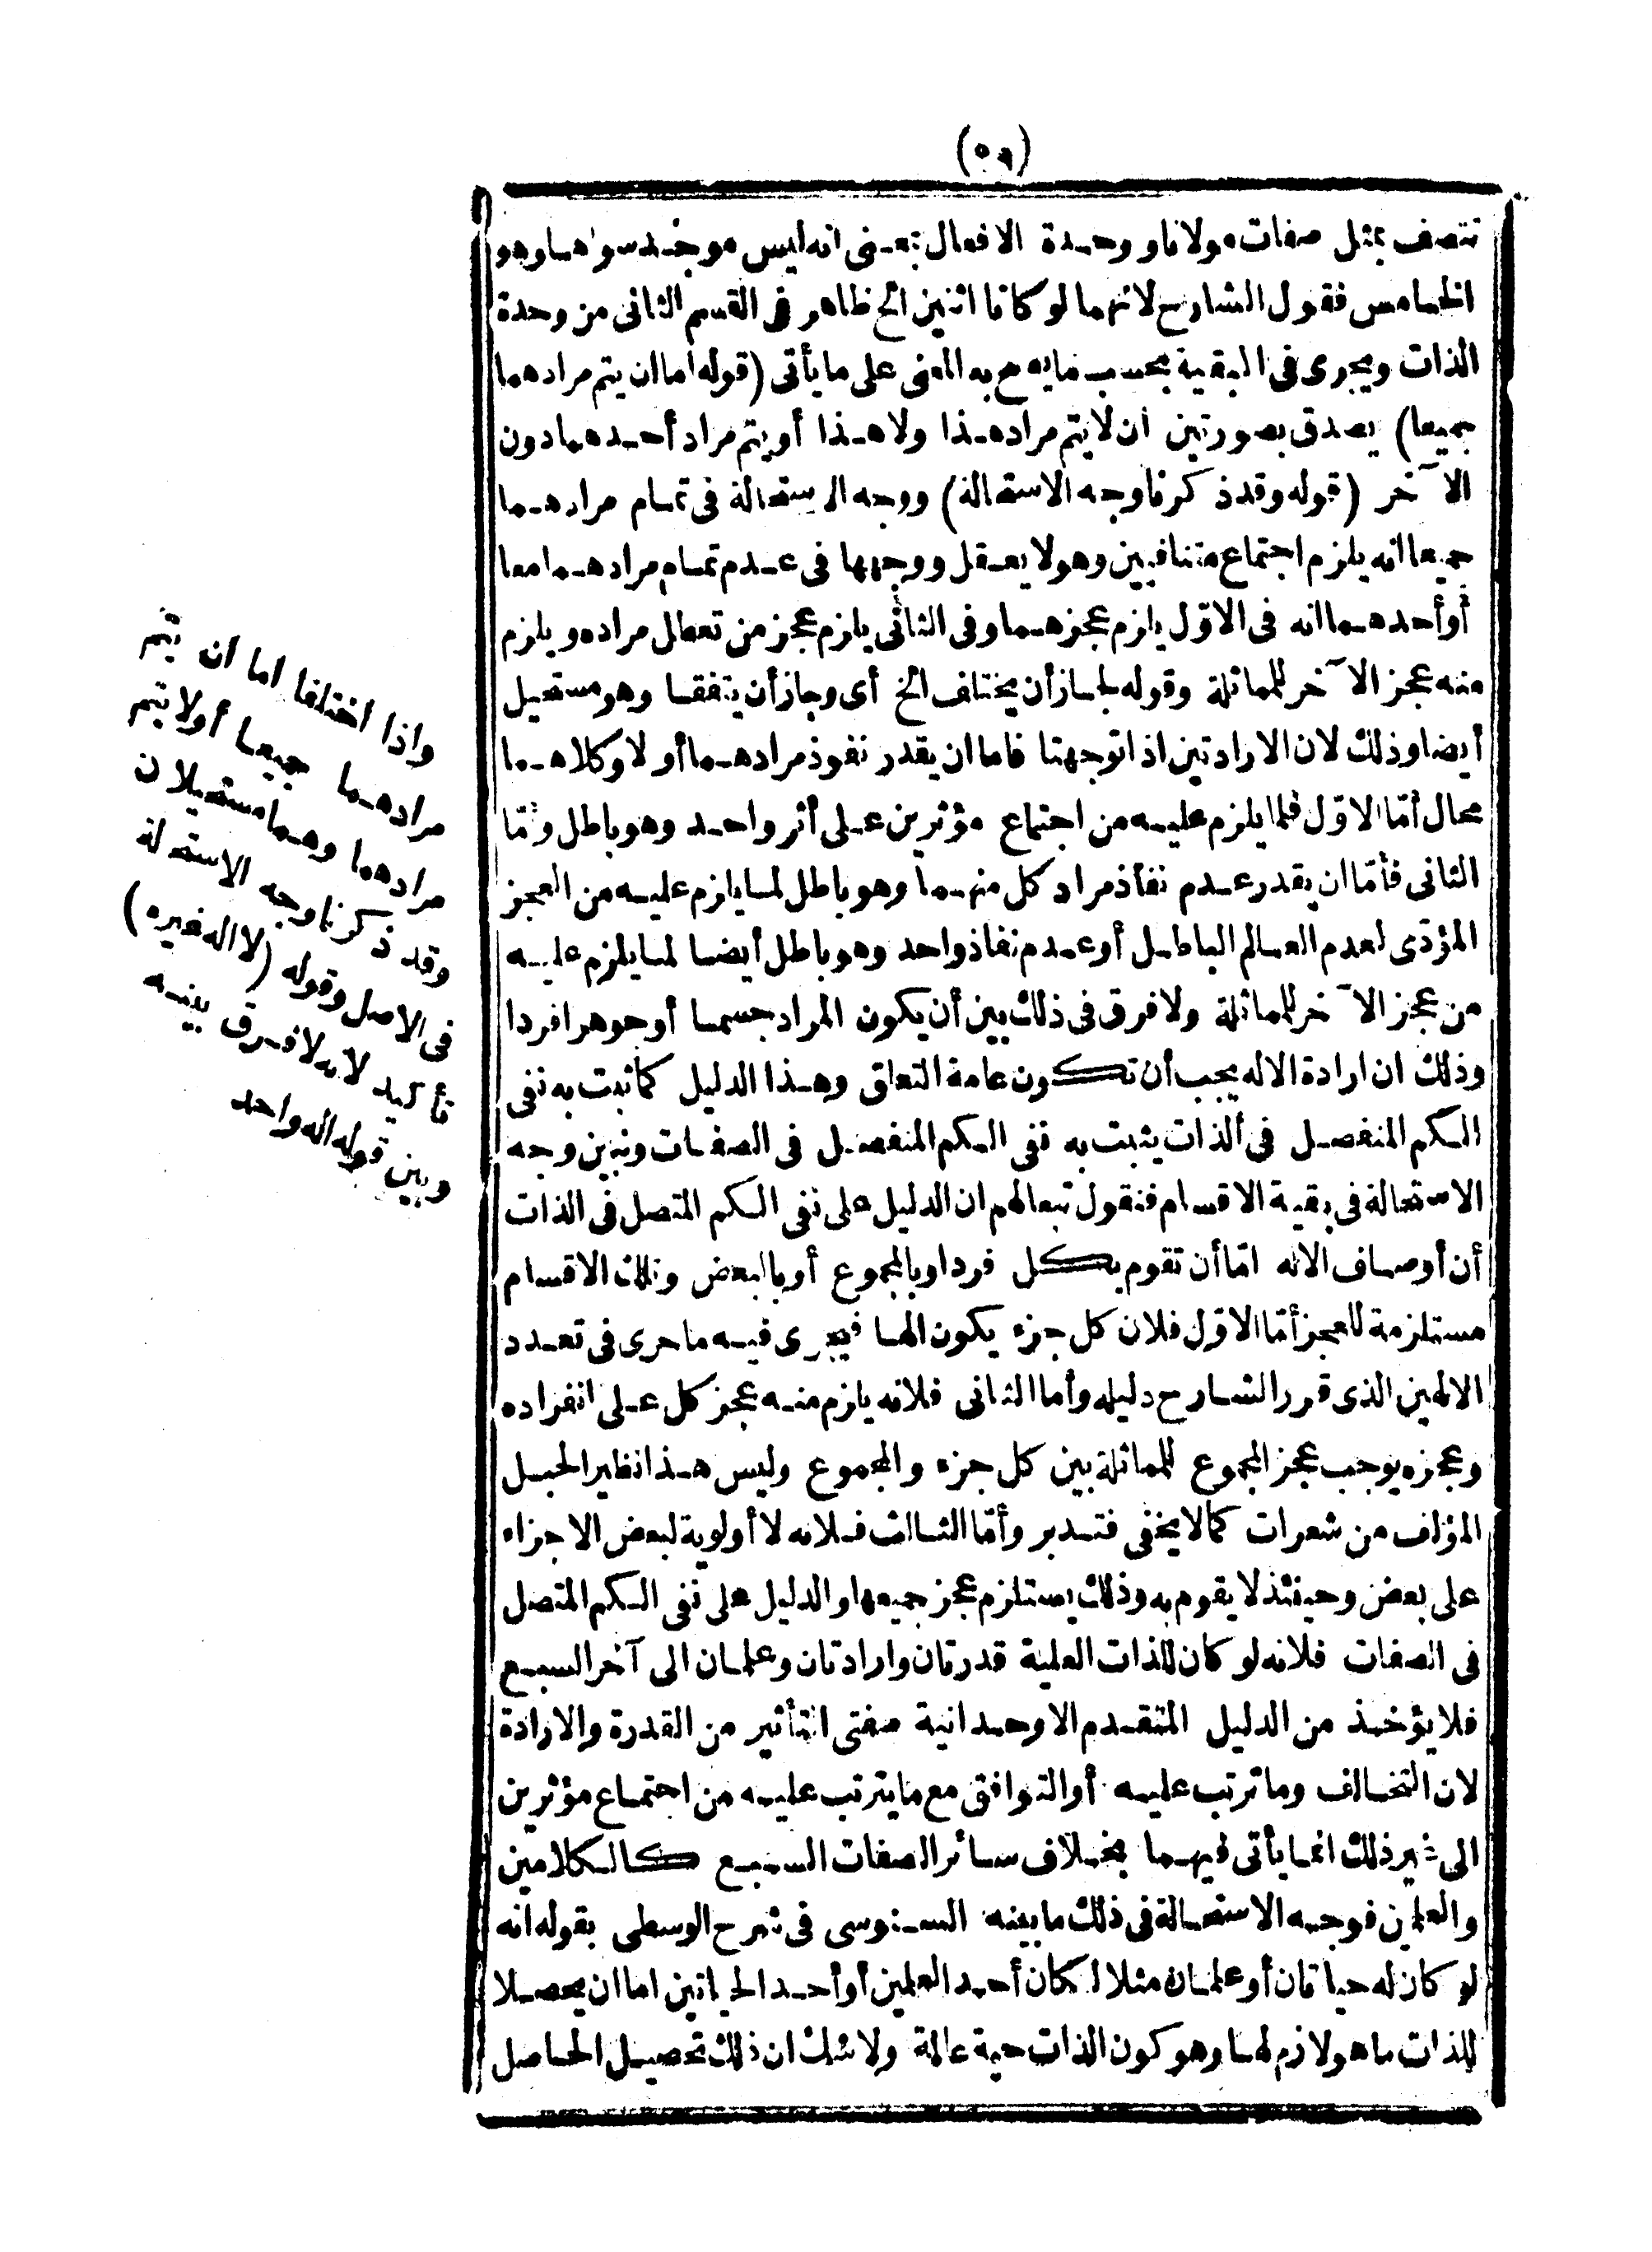 (٥٩)
تتصف بمثل صفات مولانا ووحدة الافعال بمعنى انه ليس موجد سواها وهو
الخامس فقول الشارح لانهما لو كانا اثنين الخ ظاهر فى القسم الثانى من وحدة
الذات ويجرى فى البقية بحسب ما يصح به المعنى على ما يأتى (قوله اما ان يتم مرادهما
جميعا) يصدق بصورتين ان لا يتم مراد هذا ولا هذا أو يتم مراد أحدهما دون
الآخر (قوله وقد ذكرنا وجه الاستحالة) ووجه الاستحالة فى تمام مرادهما
جميعا انه يلزم اجتماع متنافيين وهو لا يعقل ووجهها فى عدم تمام مرادهما معا
أو أحدهما انه فى الاوّل يلزم عجزهما وفى الثانى يلزم عجز من تعطل مراده ويلزم
منه عجز الآخر للمماثلة وقوله لجاز أن يختلف الخ أى وجاز أن يتفقا وهو مستحيل
أيضا وذلك لان الارادتين اذا توجهتا فاما ان يقدر نفوذ مرادهما أو لا وكلاهما
محال أمّا الاوّل فلما يلزم عليه من اجتماع مؤثرين على أثر واحد وهو باطل وأمّا
الثانى فأمّا ان يقدر عدم نفاذ مراد كل منهما وهو باطل لما يلزم عليه من العجز
المؤدّى لعدم العالم الباطل أو عدم نفاذ واحد وهو باطل أيضا لما يلزم عليه
من عجز الآخر للمماثلة ولا فرق فى ذلك بين أن يكون المراد جسما أو جوهرا فردا
وذلك ان ارادة الاله يجب أن تكون عامة التعلق وهذا الدليل كما ثبت به نفى
الكم المنفصل فى الذات يثبت به نفى الكم المنفصل فى الصفات ونبين وجه
الاستحالة فى بقية الاقسام فنقول تبعا لهم ان الدليل على نفى الكم المتصل فى الذات
أن أوصاف الاله امّا أن تقوم بكل فرد او بالمجموع أو بالبعض وتلك الاقسام
مستلزمة للعجز أمّا الاوّل فلان كل جزء يكون الها فيجرى فيه ما جرى فى تعدد
الالهين الذى قرر الشارح دليله وأما الثانى فلانه يلزم منه عجز كل على انفراده
وعجزه يوجب عجز المجموع للمماثلة بين كل جزء والمجموع وليس هذا نظير الحبل
المؤلف من شعرات كما لا يخفى فتدبر وأمّا الثالث فلانه لا أولوية لبعض الاجزاء
على بعض وحينئذ لا يقوم به وذلك يستلزم عجز جميعها والدليل على نفى الكم المتصل
فى الصفات فلانه لو كان للذات العلية قدرتان وارادتان وعلمان الى آخر السبع
فلا يؤخذ من الدليل المتقدم الا وحدانية صفتى التأثير من القدرة والارادة
لان التخالف وما ترتب عليه أو التوافق مع ما يترتب عليه من اجتماع مؤثرين
الى غير ذلك انما يأتى فيهما بخلاف سائر الصفات السبع كالكلامين
والعلمين فوجه الاستحالة فى ذلك ما بينه السنوسى فى شرح الوسطى بقوله انه
لو كان له حياتان أو علمان مثلا لكان أحد العلمين أو أحد الحياتين اما ان يحصلا
للذات ما هو لازم لها وهو كون الذات حية عالمة ولا شك ان ذلك تحصيل الحاصل
واذا اختلفا اما ان يتم
مرادهما جميعا أو لا يتم
مرادهما وهما مستحيلان
وقد ذكرنا وجه الاستحالة
فى الاصل وقوله (لا اله غيره)
تأكيد لانه لا فرق بينه
وبين قوله اله واحد